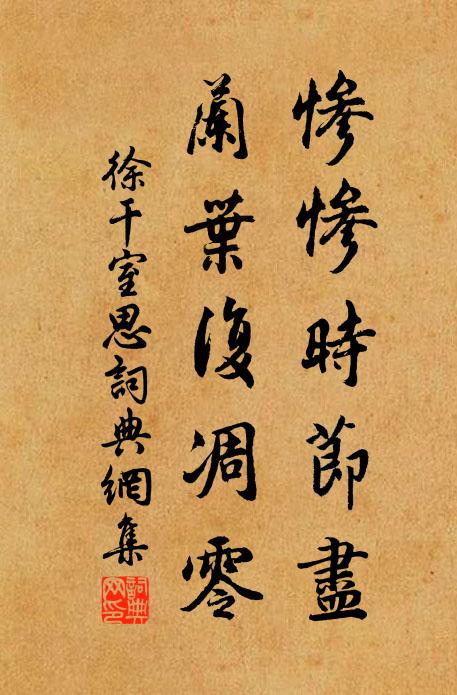 慘慘時節盡
蘭葉復凋零
徐干室思詞典網集
詞典網印